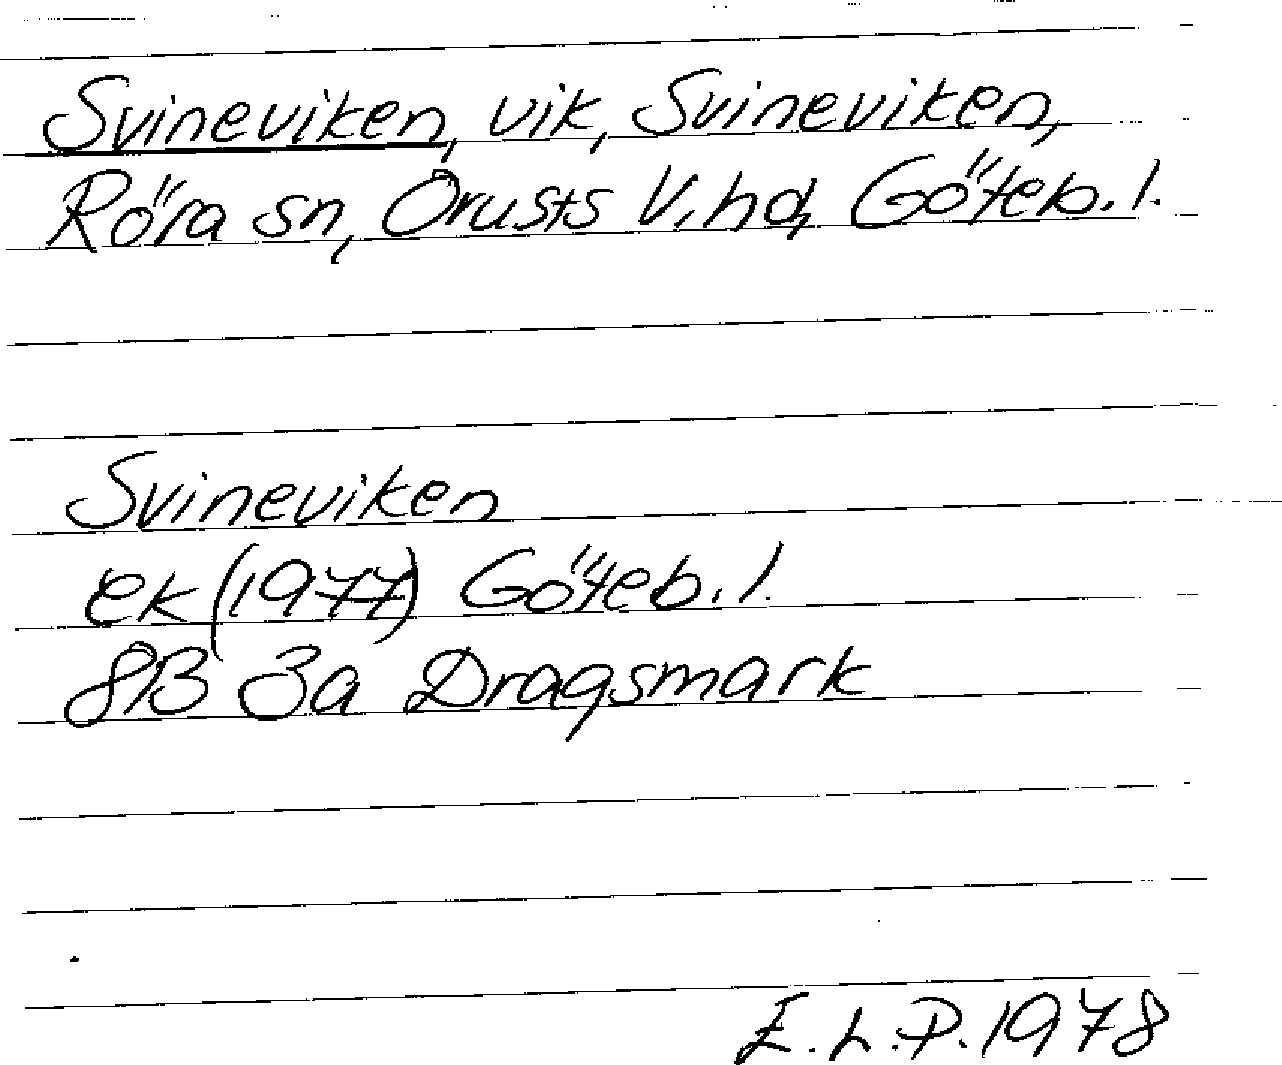 Svineviken, vik, Svineviken,
Röra sn, Orusts V. hd, Göteb. l.
Svineviken
ek (1977) Göteb. l.
8B 3a Dragsmark
E.L.P. 1978